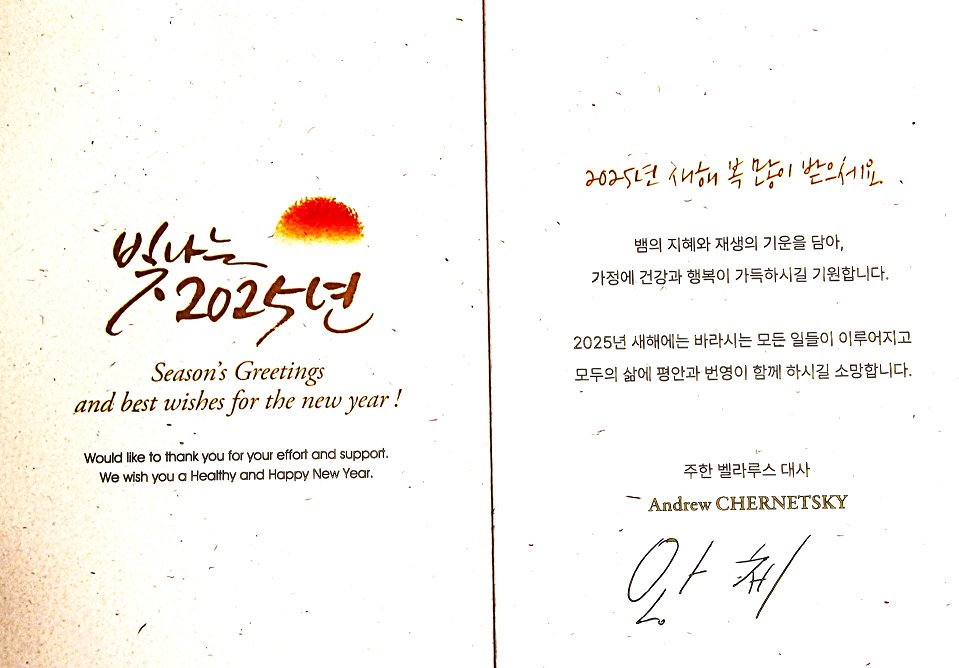 빛나는
2025년
Season's Greetings
and best wishes for the new year !
Would like to thank you for your effort and support.
We wish you a Healthy and Happy New Year.
2025년 새해 복 많이 받으세요
뱀의 지혜와 재생의 기운을 담아,
가정에 건강과 행복이 가득하시길 기원합니다.
2025년 새해에는 바라시는 모든 일들이 이루어지고
모두의 삶에 평안과 번영이 함께 하시길 소망합니다.
주한 벨라루스 대사
Andrew CHERNETSKY